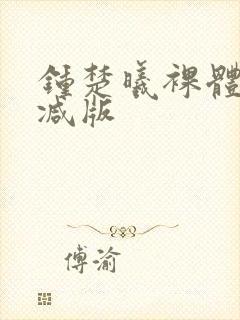 鍾楚曦裸體
减版
傅渝